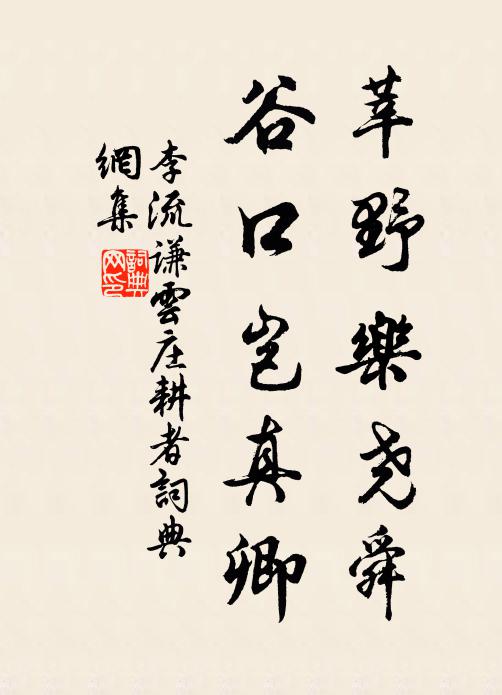 莘野樂尧舜
谷口岂真卿
李流谦雲庄耕者詞典
網集
詞典网印